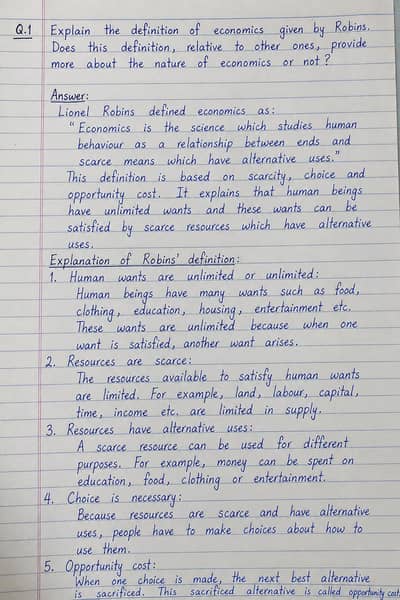 Q.1 Explain the definition of economics given by Robins.
Does this definition, relative to other ones, provide
more about the nature of economics or not?
Answer:
Lionel Robins defined economics as:
"Economics is the science which studies human
behaviour as a relationship between ends and
scarce means which have alternative uses."
This definition is based on scarcity, choice and
opportunity cost. It explains that human beings
have unlimited wants and these wants can be
satisfied by scarce resources which have alternative
uses.
Explanation of Robins' definition:
1. Human wants are unlimited or unlimited:
Human beings have many wants such as food,
clothing, education, housing, entertainment etc.
These wants are unlimited because when one
want is satisfied, another want arises.
2. Resources are scarce:
The resources available to satisfy human wants
are limited. For example, land, labour, capital,
time, income etc. are limited in supply.
3. Resources have alternative uses:
A scarce resource can be used for different
purposes. For example, money can be spent on
education, food, clothing or entertainment.
4. Choice is necessary:
Because resources are scarce and have alternative
uses, people have to make choices about how to
use them.
5. Opportunity cost:
When one choice is made, the next best alternative
is sacrificed. This sacrificed alternative is called opportunity cost